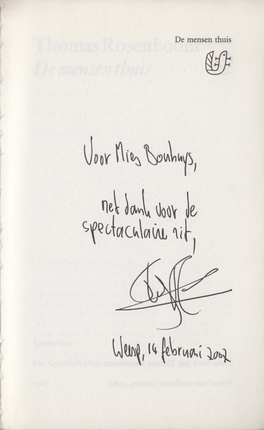 De mensen thuis
Thomas Rosenboom
De mensen thuis
Voor Mies Bouhuys,
met dank voor de
spectaculaire rit,
Weesp, 14 februari 2002